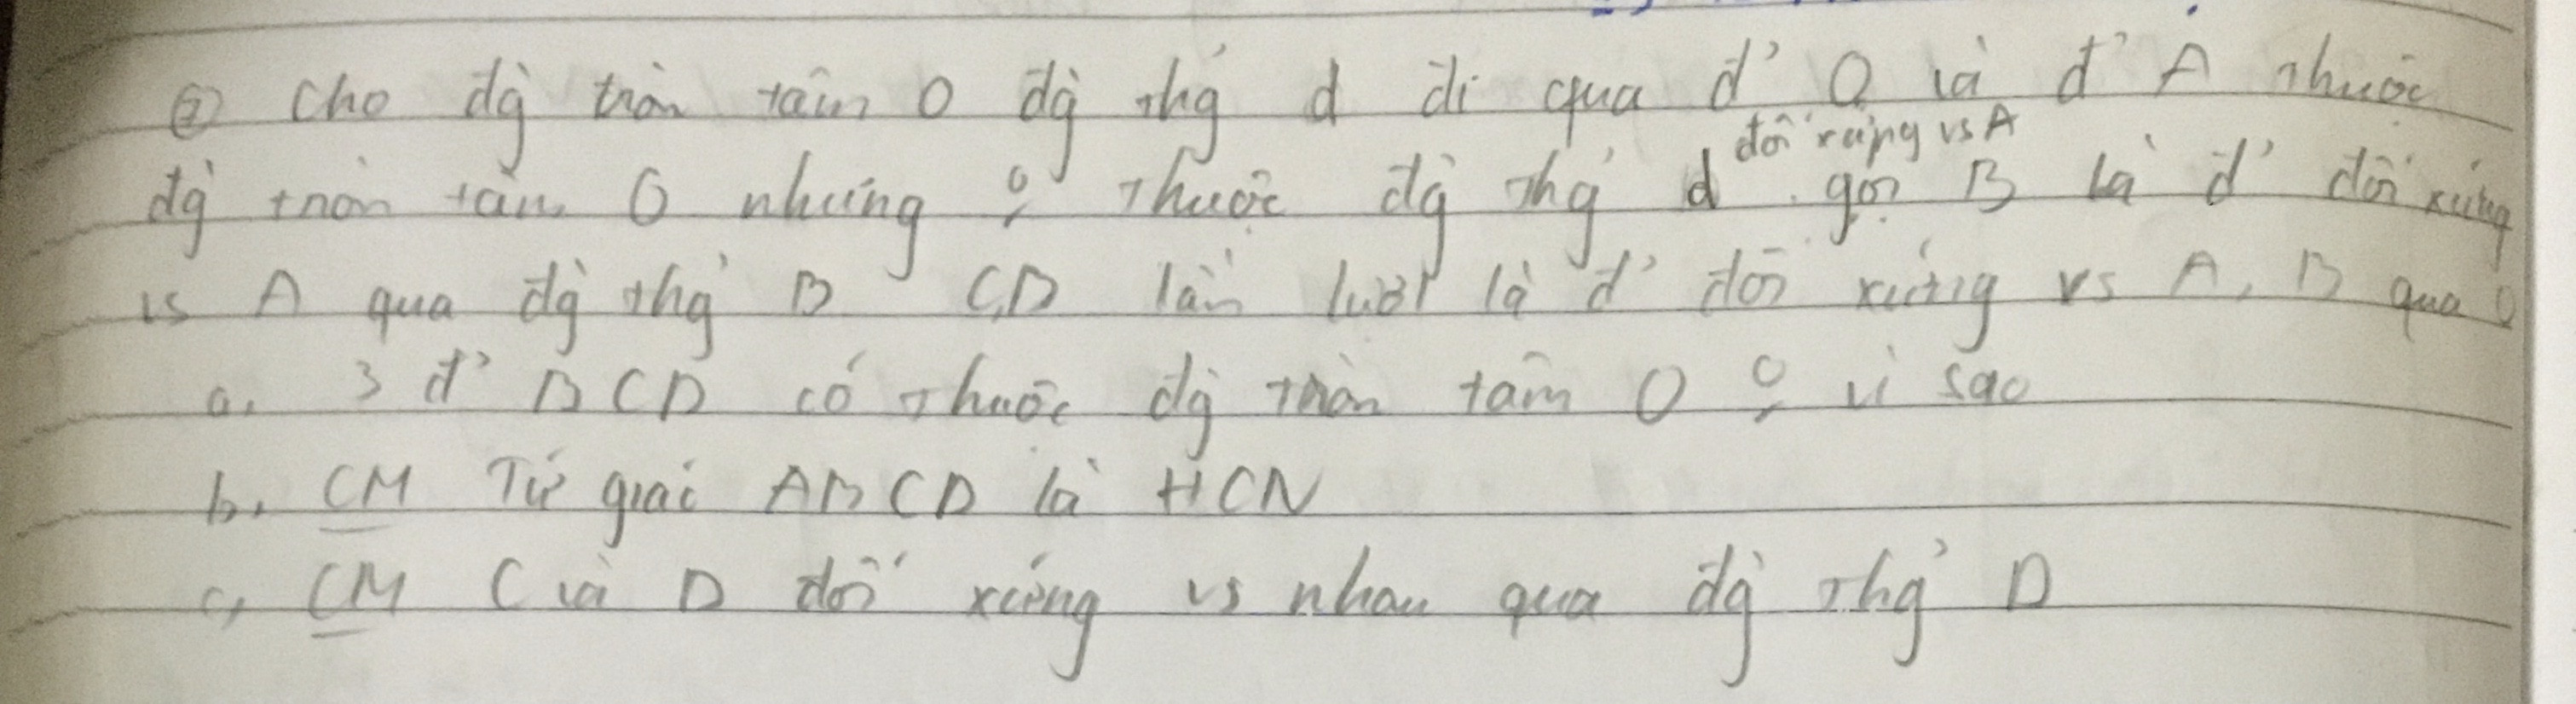 ② Cho đg̀ tròn tâm O đg̀ thg̉ d đi qua đ̉ O và đ̉ A thuộc
đối xứng vs A
đg̀ tròn tâm O nhưng o thuộc đg̀ thg̉ d gọi B là đ̉ đối xứng
vs A qua đg̀ thg̉ D C,D lần lượt là đ̉ đối xứng vs A, B qua O
a. 3 đ̉ B C D có thuộc đg̀ tròn tâm O o vì sao
b, CM Tứ giác ABCD là HCN
c, CM C và D đối xứng vs nhau qua đg̀ thg̉ D